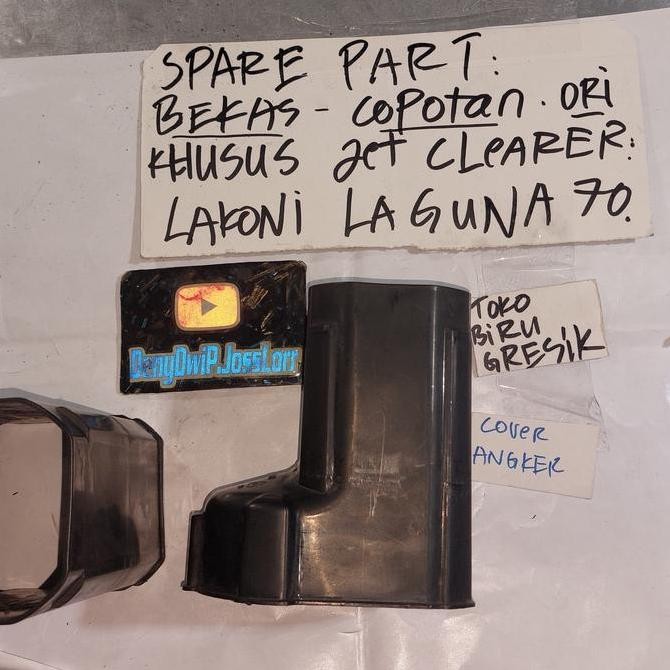 SPARE PART:
BEKAS - COPOTAN. ORI
KHUSUS Jet CLEARER:
LAKONI LAGUNA 70.
DanyDwiP.JossLorr
TOKO
BIRU
GRESIK
COVER
ANGKER